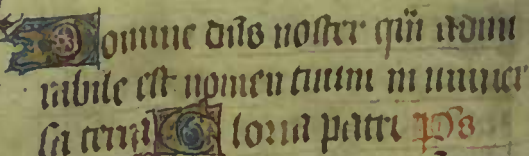 Domine dñs noster q̃ȝ admi
rabile est nomen tuum in uniuer
sa terra Gloria patri p̄s